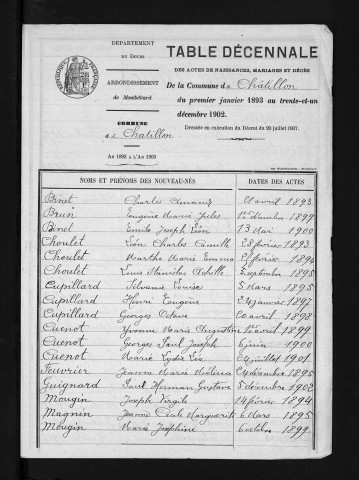 DÉPARTEMENT
du Doubs
ARRONDISSEMENT
de Montbéliard
COMMUNE
de Chatillon
AN 1893 A L'AN 1903
TABLE DÉCENNALE
DES ACTES DE NAISSANCES, MARIAGES ET DÉCÈS
De la Commune de Châtillon
du premier janvier 1893 au trente-et-un
décembre 1902.
Dressée en exécution du Décret du 20 Juillet 1807.
NOMS ET PRÉNOMS DES NOUVEAU-NÉS DATES DES ACTES
Binet Charles Amand 21 avril 1893
Brun Eugène Marie Jules 1er décembre 1899
Binet Emile Joseph Léon 13 Mai 1900
Choulet Léon Charles Camille 25 février 1893
Choulet Marthe Marie Emma février 1894
Choulet Louis Stanislas Achille septembre 1895
Cupillard Silvanie Louise 5 Mars 1895
Cupillard Henri Eugène janvier 1897
Cupillard Georges Octave 20 avril 1898
Cuenot Yvonne Marie Augustine 12 avril 1899
Cuenot Georges Paul Joseph 6 juin 1900
Cuenot Marie Lydie Léa juillet 1901
Feuvrier Jeanne Marie Mélina décembre 1895
Guignard Paul Herman Gustave 5 décembre 1902
Mougin Joseph Virgile 14 février 1894
Magnin Jeanne Cécile Marguerite 6 Mars 1895
Mougin Marie Joséphine 6 octobre 1899